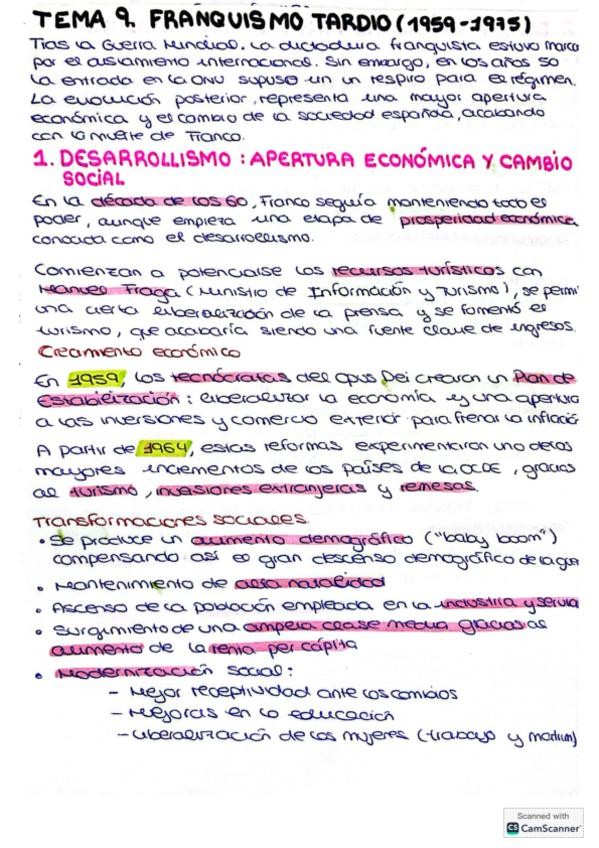 TEMA 9. FRANQUISMO TARDIO (1959-1975)
Tras la Guerra Mundial, la dictadura franquista estuvo marca
por el aislamiento internacional. Sin embargo, en los años 50
la entrada en la ONU supuso un un respiro para el régimen.
La evolución posterior, representa una mayor apertura
económica y el cambio de la sociedad española, acabando
con la muerte de Franco.
1. DESARROLLISMO : APERTURA ECONÓMICA Y CAMBIO
SOCIAL
En la década de los 60, Franco seguía manteniendo todo el
poder, aunque empieza una etapa de prosperidad económica
conocida como el desarrollismo.
Comienzan a potenciarse los recursos turísticos con
Manuel Fraga (Ministro de Información y Turismo), se permi
una cierta liberalización de la prensa y se fomentó el
turismo, que acabaría siendo una fuente clave de ingresos.
Crecimiento económico
En 1959, los tecnócratas del opus Dei crearon un Plan de
Estabilización : liberalizar la economía y una apertura
a las inversiones y comercio exterior para frenar la inflació
A partir de 1964, estas reformas experimentaron uno de los
mayores incrementos de los países de la OCDE, gracias
al turismo, inversiones extranjeras y remesas.
Transformaciones sociales
• Se produce un aumento demográfico ("baby boom")
compensando así el gran descenso demográfico de la gue
• Mantenimiento de alta natalidad
• Ascenso de la población empleada en la industria y servic
• Surgimiento de una amplia clase media gracias al
aumento de la renta per cápita
• Modernización social:
- Mejor receptividad ante los cambios
- Mejoras en la educación
- Liberalización de las mujeres (trabajo y
Scanned with
CS CamScanner